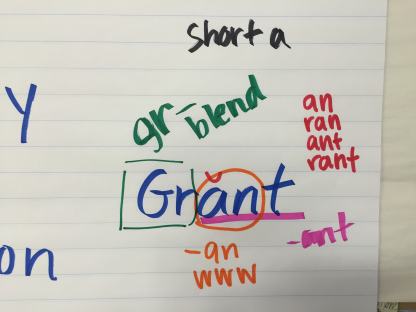 short a
gr-blend
an
ran
ant
rant
y
Grănt
-ant
-an
www
on